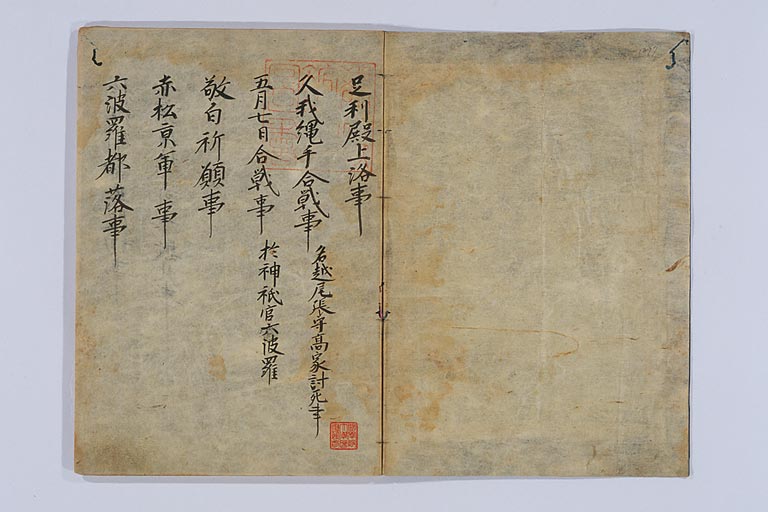 足利殿上洛事
久我縄手合戦事 名越尾張守高家討死事
五月七日合戦事 於神祇官六波羅
敬白祈願事
赤松京軍事
六波羅都落事